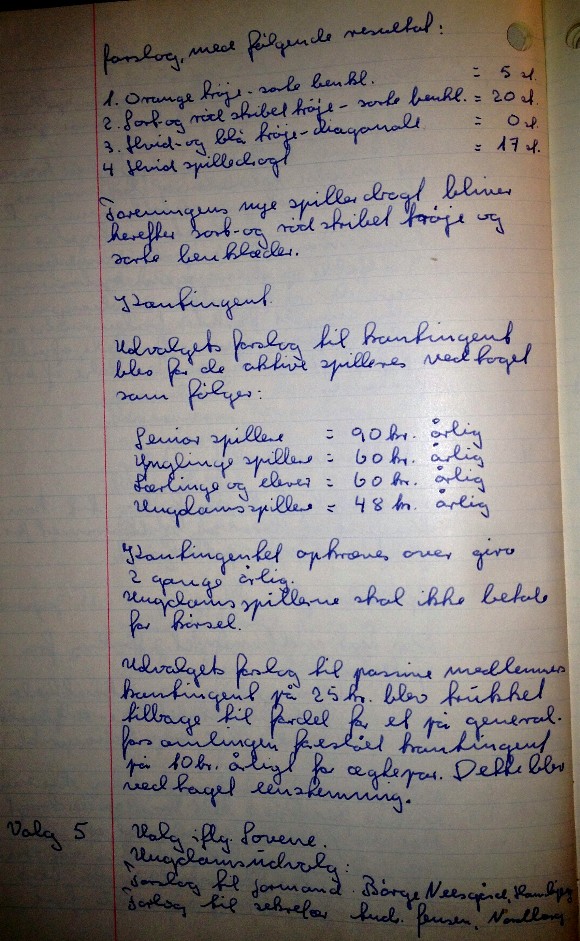 forslog, med følgende resultat:
1. Orange trøje - sorte benkl. = 5 st.
2. Sort og rød stribet trøje - sorte benkl. = 20 st.
3. Hvid- og blå trøje - diagonale = 0 st.
4 Hvid spilledragt = 17 st.
Foreningens nye spillerdragt bliver
herefter sort- og rød stribet trøje og
sorte benklæder.
Kontingent.
Udvalgets forslog til kontingent
blev for de aktive spilleres vedtaget
som følger:
Senior spillere = 90 kr. årlig
Ynglinge spillere = 60 kr. årlig
Lærlinge og elever = 60 kr. årlig
Ungdomsspillere = 48 kr. årlig
Kontingentet opkræves over giro
2 gange årlig.
Ungdomsspillerne skal ikke betale
for kørsel.
Udvalgets forslog til passive medlemmers
kontingent på 25 kr. blev trukket
tilbage til fordel for et på general-
forsamlingen foreslået kontingent
på 10 kr. årligt for ægtepar. Dette blev
vedtaget eenstemmig.
Valg 5 Valg iflg. Lovene.
Ungdomsudvalg:
Forslag til formand. Børge Neesgård,
Forlog til sekretær Jensen, Nordborg